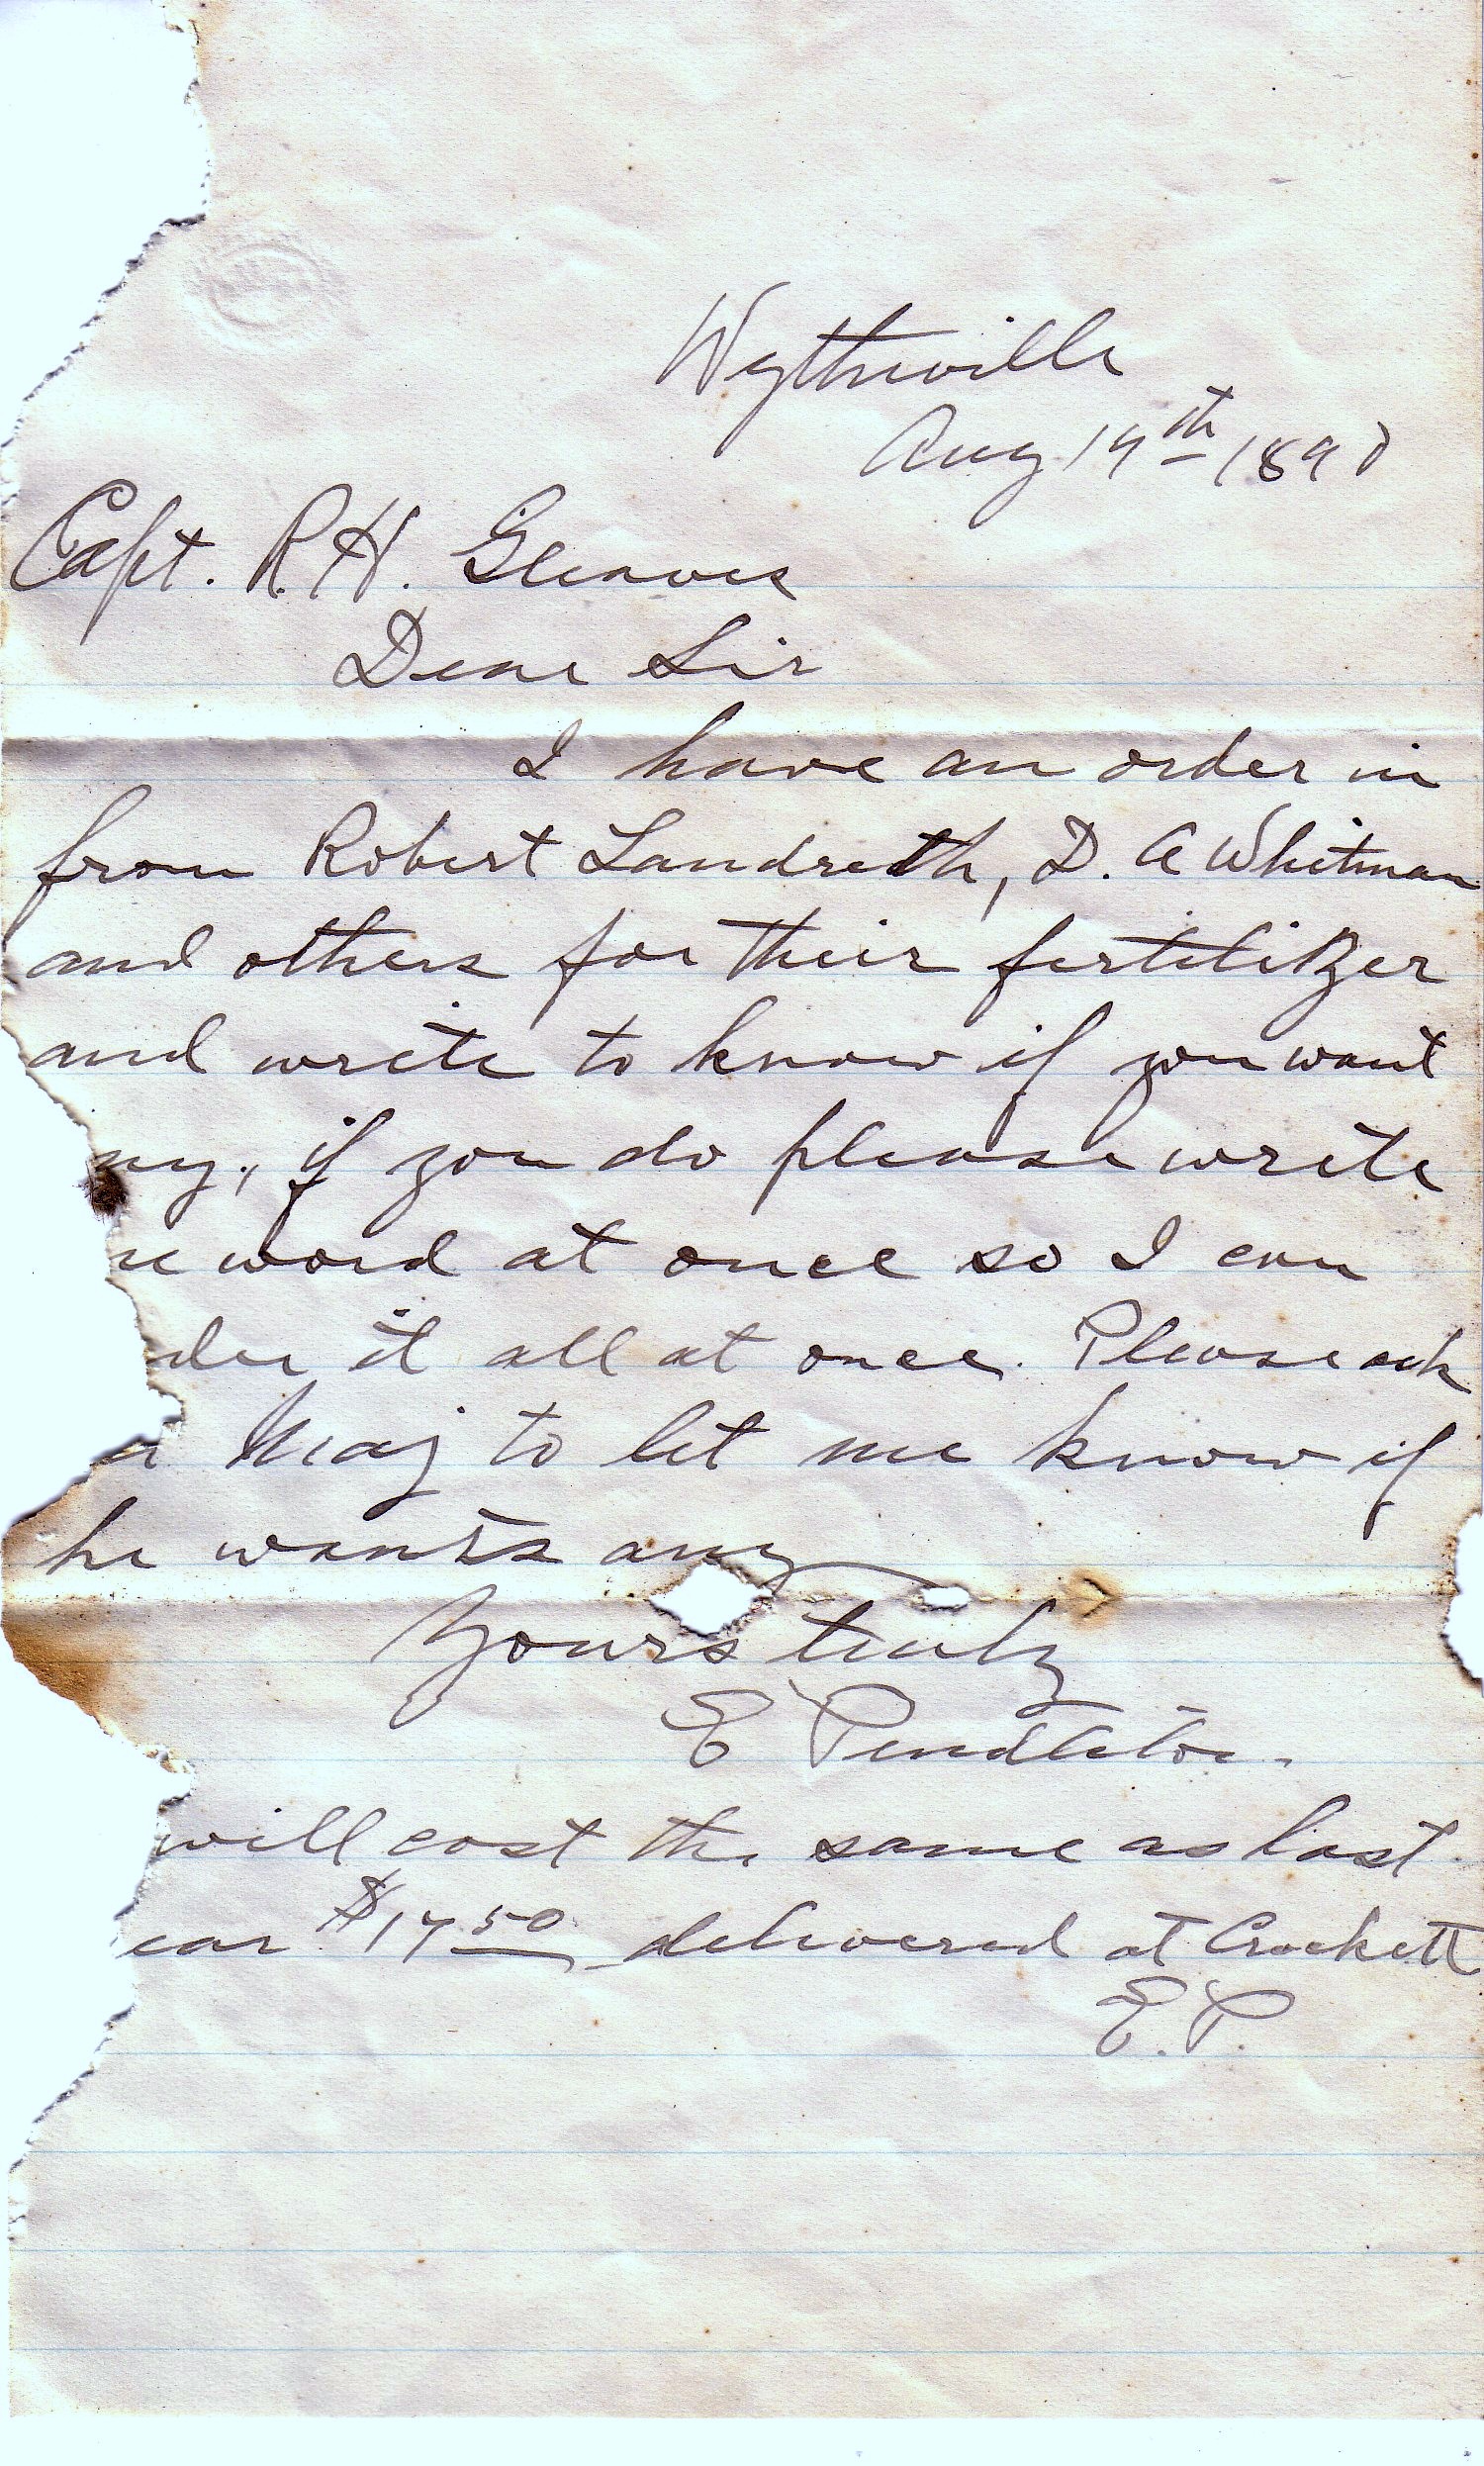 Wytheville
Aug 19th 1890
Capt. R. H. Gleaves
Dear Sir
I have an order in
from Robert Landreth, D. A Whitman
and others for their fertilizer
and write to know if you want
ny, if you do please write
e word at once so I can
der it all at once. Please ask
Maj to let me know if
he wants any
Yours truly
E Pendleton.
will cost the same as last
ear $17 50 delivered at Crockett
E. P.